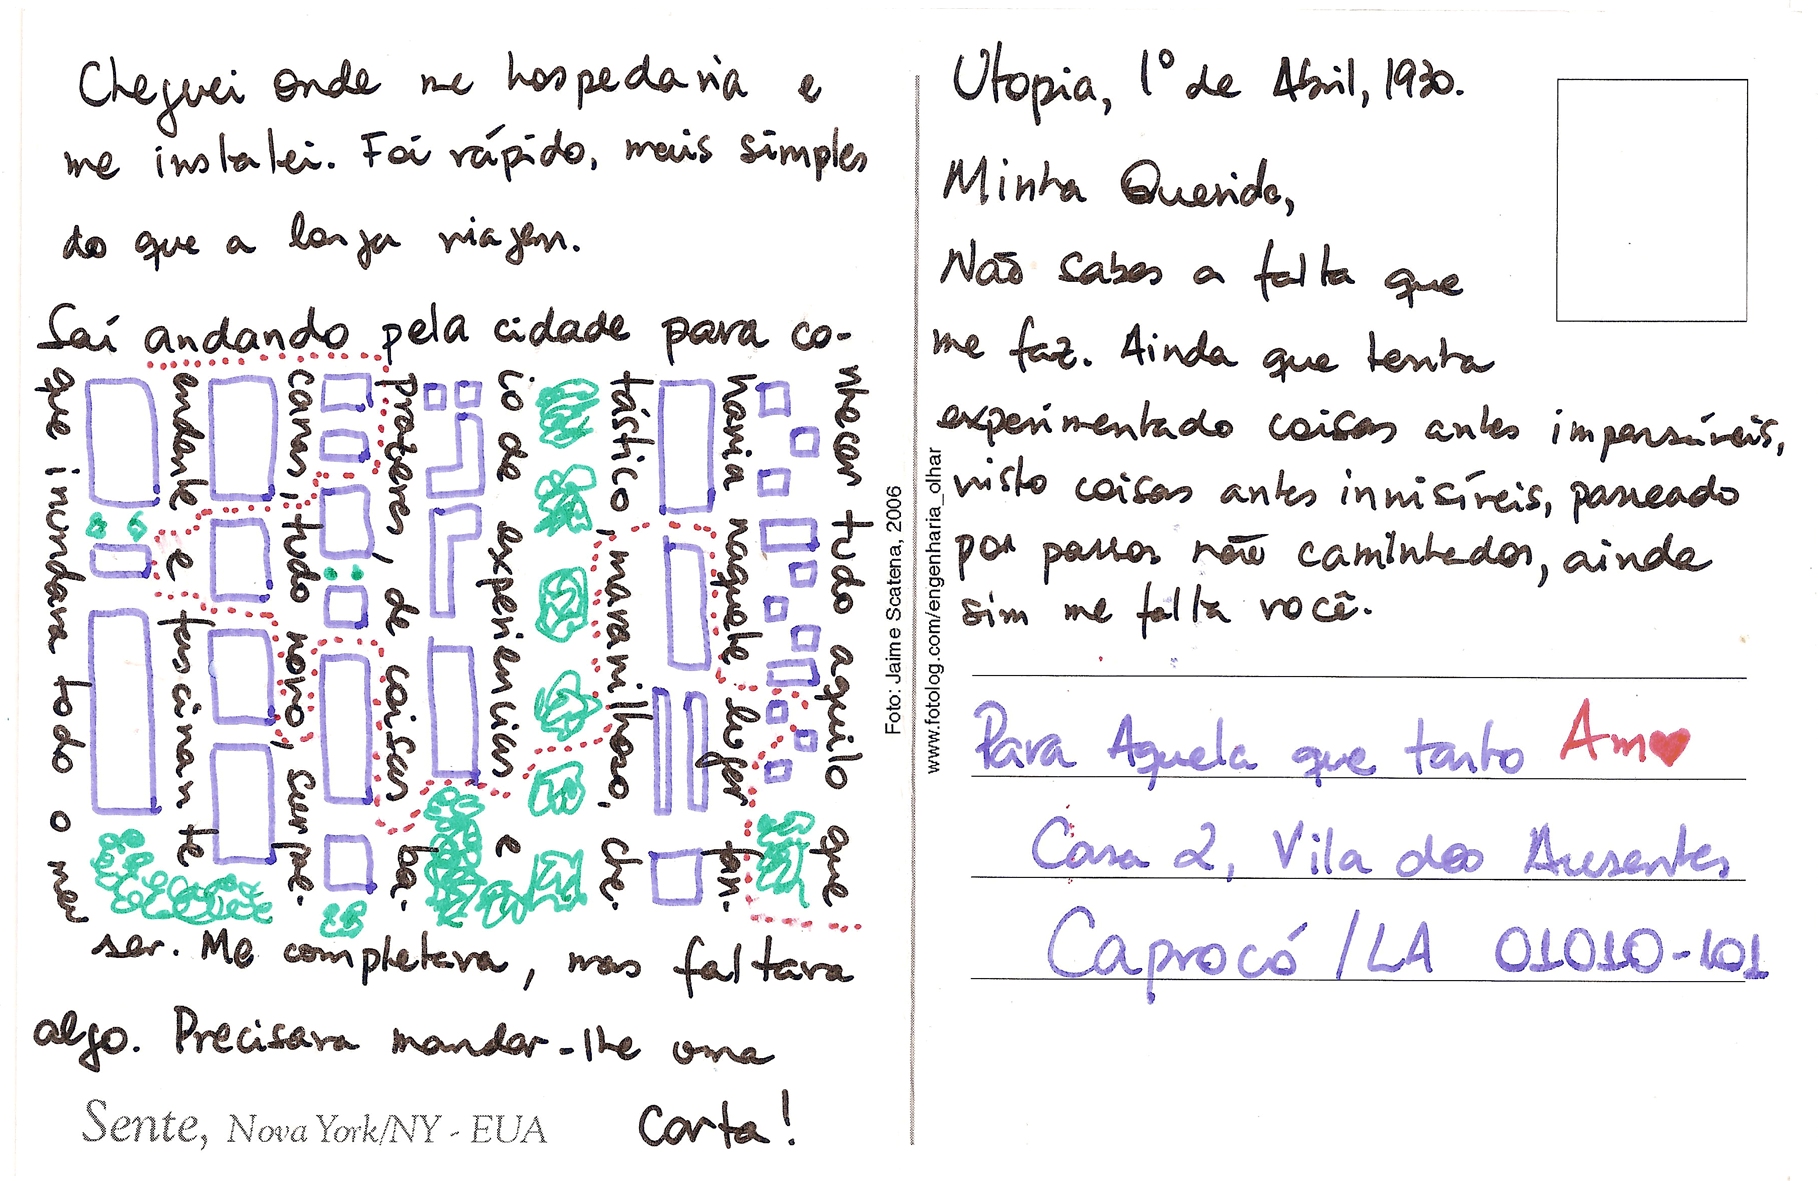 Cheguei onde me hospedaria e
me instalei. Foi rápido, mais simples
do que a longa viagem.
Saí andando pela cidade para co-
nhecer tudo aquilo que
havia naquele lugar fan-
tástico, maravilhoso, che-
io de experiencias e
prazeres, de coisas ba-
canas, tudo novo, surpre-
endente e fascinante
que inundava todo o meu
ser. Me completava, mas faltava
algo. Precisava mandar-lhe uma
Carta!
Sente, Nova York/NY - EUA
Foto: Jaime Scatena, 2006
www.fotolog.com/engenharia_olhar
Utopia, 1º de Abril, 1930.
Minha Querida,
Não sabes a falta que
me faz. Ainda que tenha
experimentado coisas antes impensáveis,
visto coisas antes invisíveis, passeado
por passos não caminhados, ainda
sim me falta você.
Para Aquela que tanto Am♥
Casa 2, Vila dos Ausentes
Caprocó /LA 01010-101